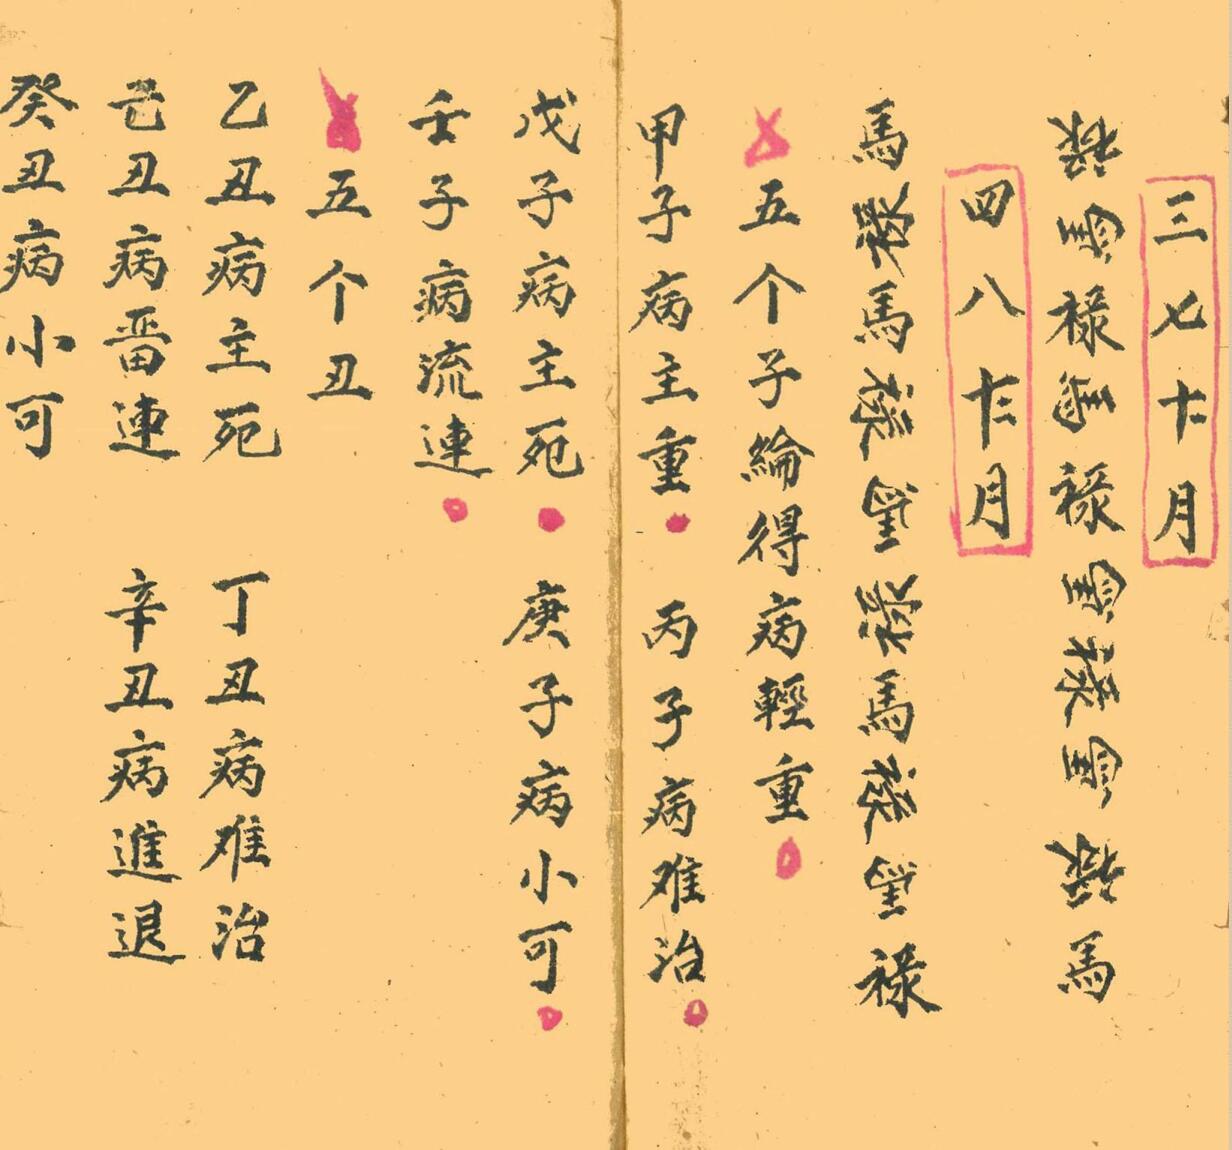 三七十一月
禄馬禄馬禄馬禄馬禄馬
四八十二月
馬禄馬禄馬禄馬禄馬禄
五个子綸得病輕重
甲子病主重 丙子病难治
戊子病主死 庚子病小可
壬子病流連
五个丑
乙丑病主死 丁丑病难治
己丑病畱連 辛丑病進退
癸丑病小可